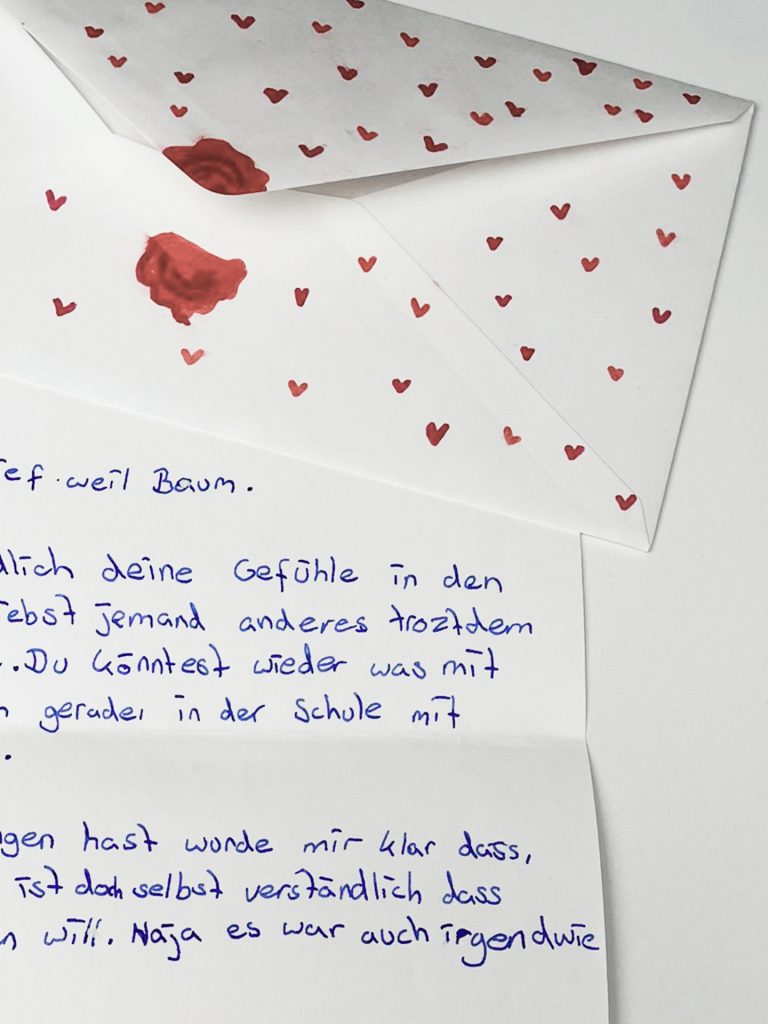 ief weil Baum.
dlich deine Gefühle in den
iebst jemand anderes troztdem
. Du könntest wieder was mit
n gerade in der Schule mit
.
gen hast wurde mir klar dass,
ist doch selbst verständlich dass
n will. Naja es war auch irgendwie